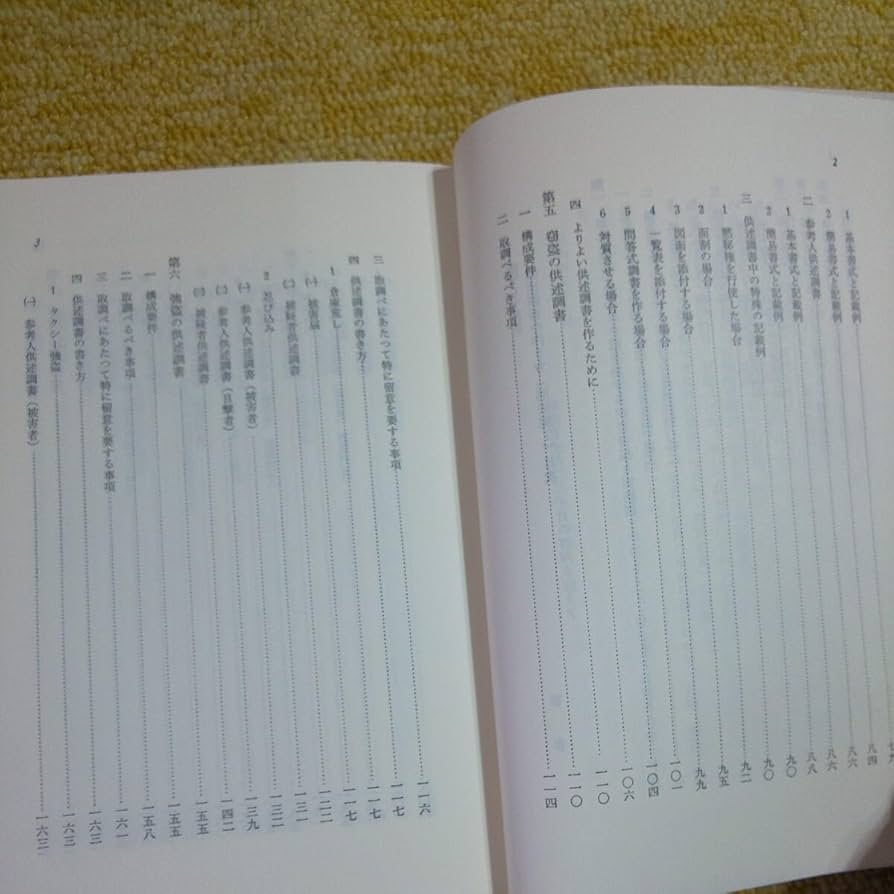 2
1 基本書式と記載例 七九
2 簡易書式と記載例
二 参考人供述調書 八六
1 基本書式と記載例 八六
2 簡易書式と記載例 八八
三 供述調書中の特殊の記載例 九〇
1 黙秘権を行使した場合 九〇
2 面割の場合 九二
3 図面を添付する場合 九五
4 一覧表を添付する場合 九九
5 問答式調書を作る場合 一〇一
6 対質させる場合 一〇四
四 よりよい供述調書を作るために 一〇六
第五 窃盗の供述調書 一一〇
一 構成要件 一一〇
二 取調べるべき事項 一一四
3
三 取調べにあたつて特に留意を要する事項 一一六
四 供述調書の書き方 一一七
1 倉庫荒し 一一七
㈠ 被害届 一一七
㈡ 被疑者供述調書 一二二
2 忍び込み 一三一
㈠ 参考人供述調書(被害者) 一三二
㈡ 参考人供述調書(目撃者) 一三九
㈢ 被疑者供述調書 一四二
第六 強盗の供述調書 一五五
一 構成要件 一五五
二 取調べるべき事項 一五八
三 取調べにあたつて特に留意を要する事項 一六一
四 供述調書の書き方 一六三
1 タクシー強盗 一六三
㈠ 参考人供述調書(被害者) 一六三